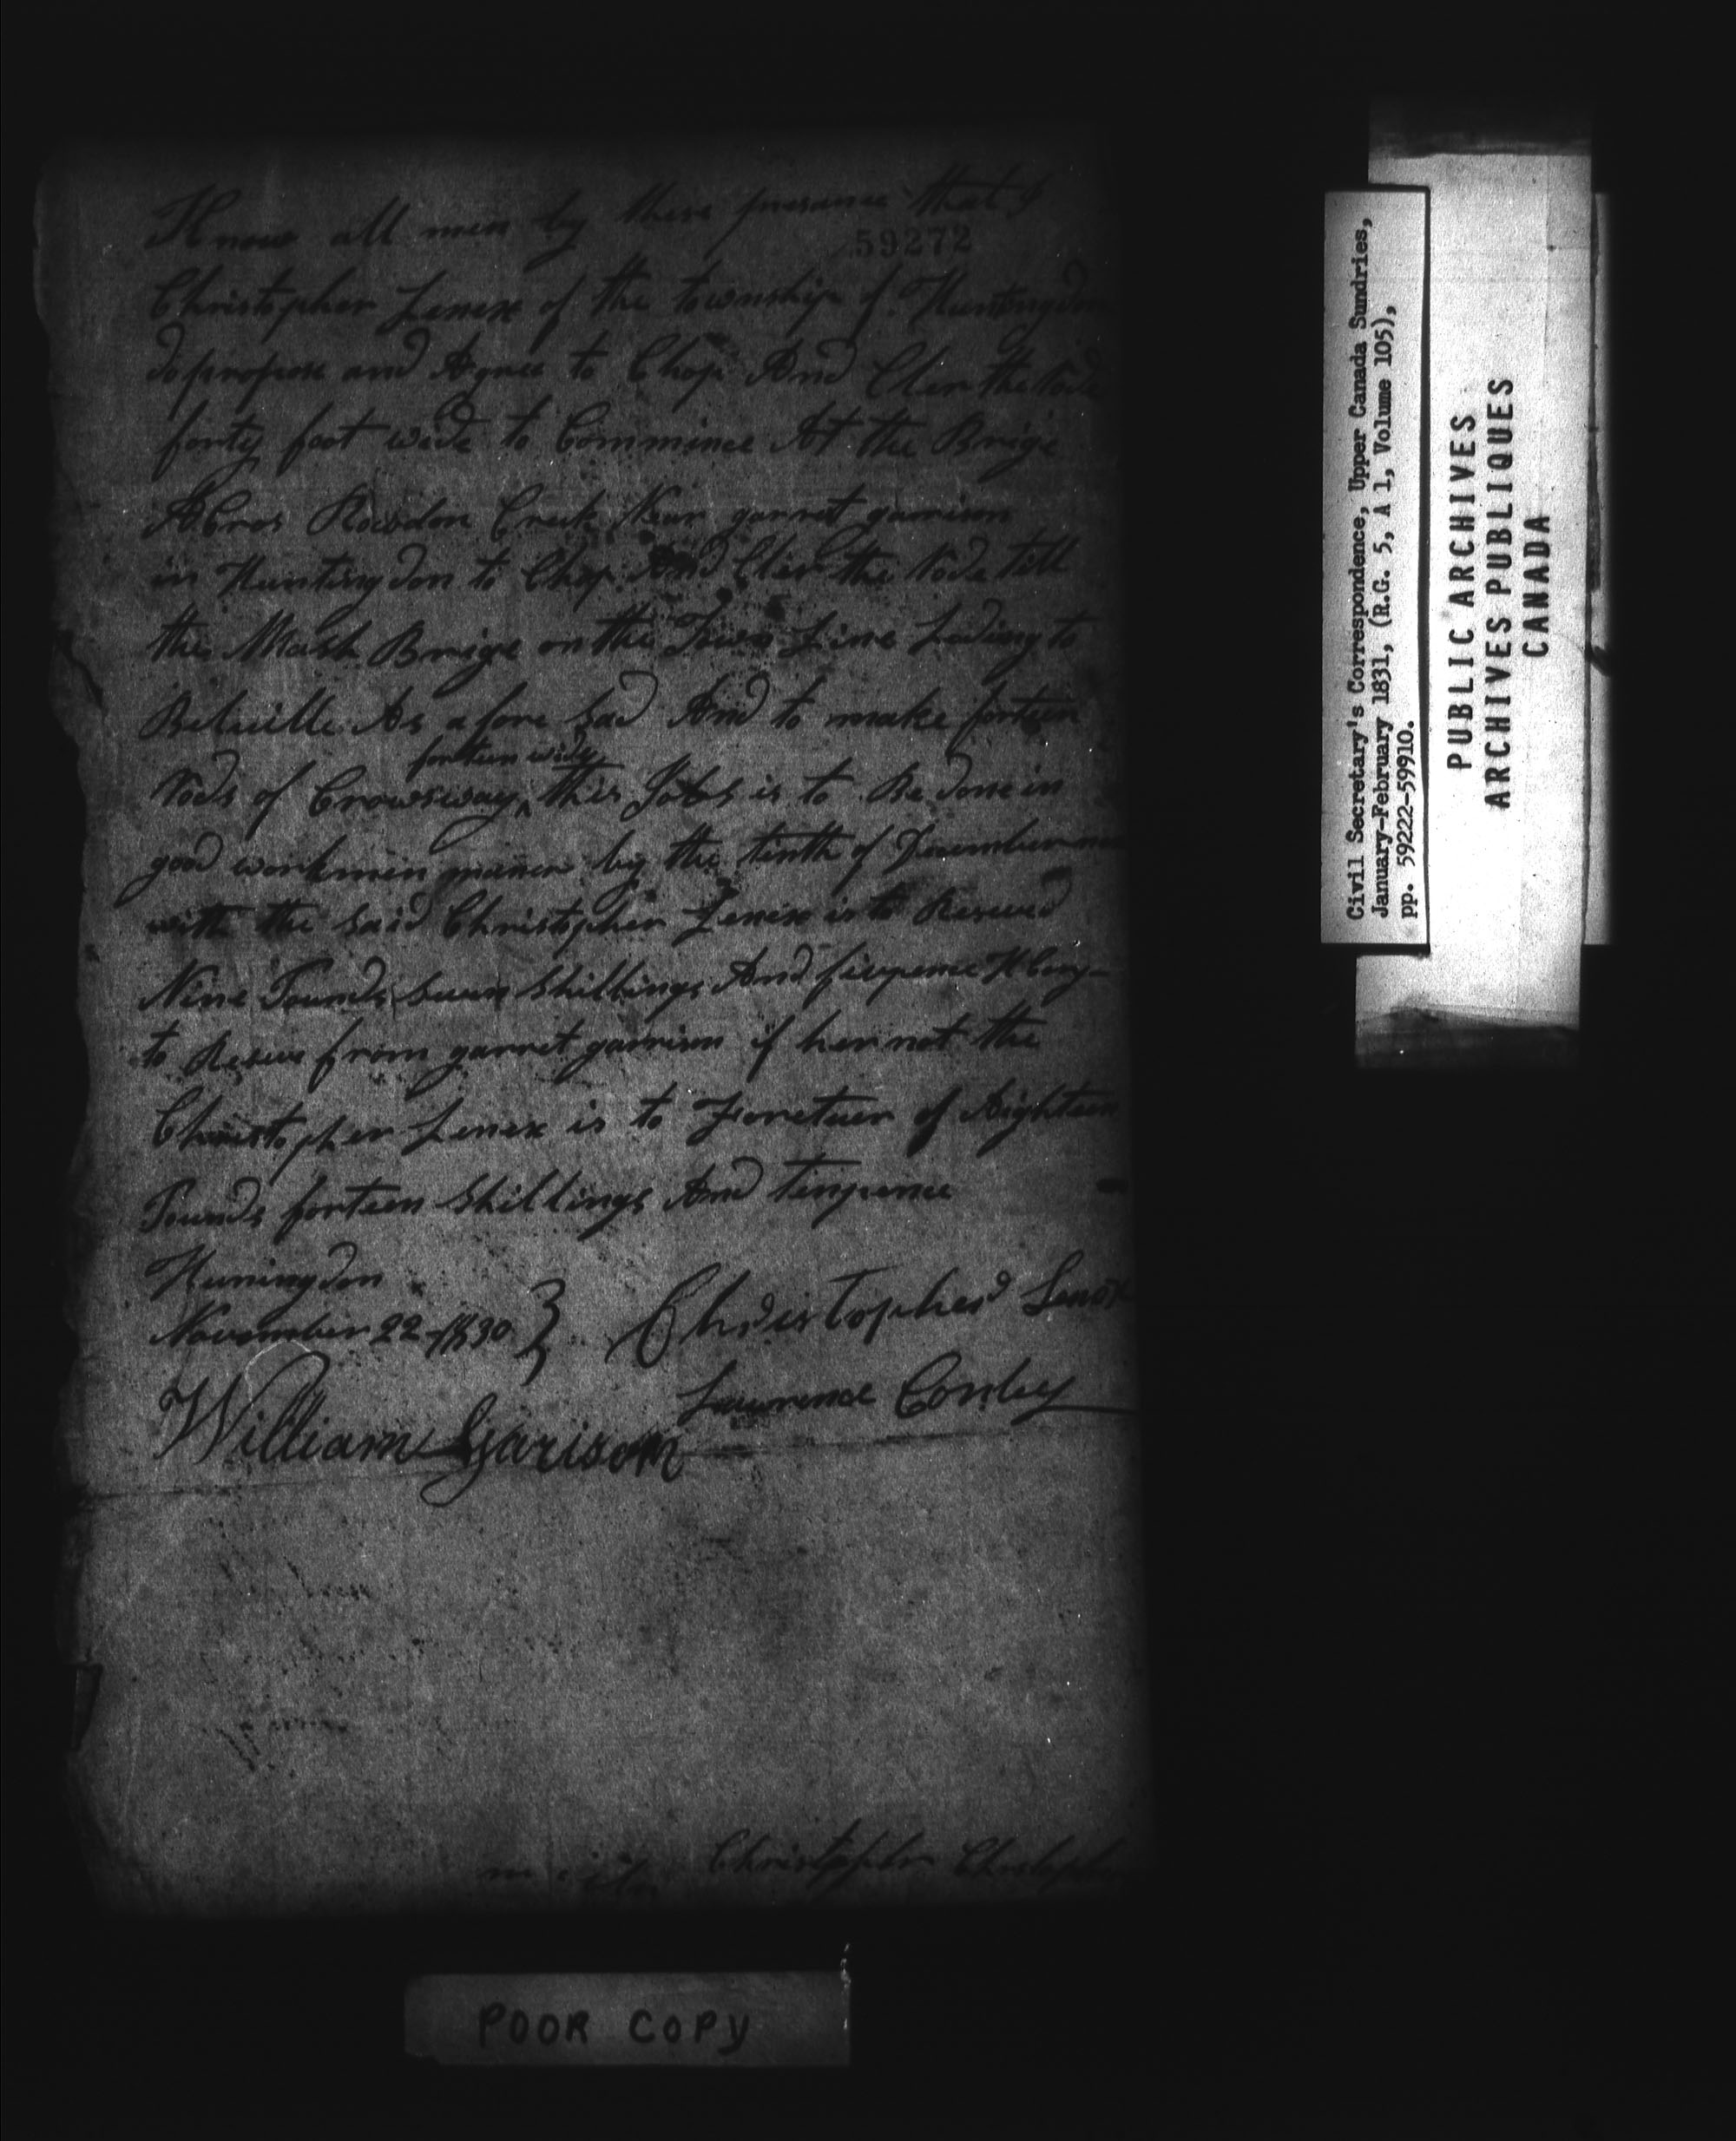 Know all men by these presance that I
59272
Christopher Lenex of the township of Huntingdon
do propose and Agree to Chop And Cler the Rode
forty foot wide to Commince At the Brige
Abros Rowdon Creek Near garret garrison
in Huntingdon to Chop And Cler the Rode till
the Mash Brige on the Town Line Lading to
Belville As afore sad And to make forteen
forteen wide
Rods of Crowsway this Jobs is to Be done in
good workmin maner by the tinth of December
with the said Christopher Lenex is to Reseved
Nine Pounds seven Shillings And fivepence
to Reseve from garret garrison if her not the
Christopher Lenex is to Foretuer of Aighteen
Pounds forteen Shillings And tenpence
Huningdon
November 22 1830 } Christopher Lenox
Lawrence Conley
William Garison
Christopher Christopher
POOR COPY
Civil Secretary's Correspondence, Upper Canada Sundries,
January-February 1831, (R.G. 5, A 1, Volume 105),
pp. 59222-59910.
PUBLIC ARCHIVES
ARCHIVES PUBLIQUES
CANADA